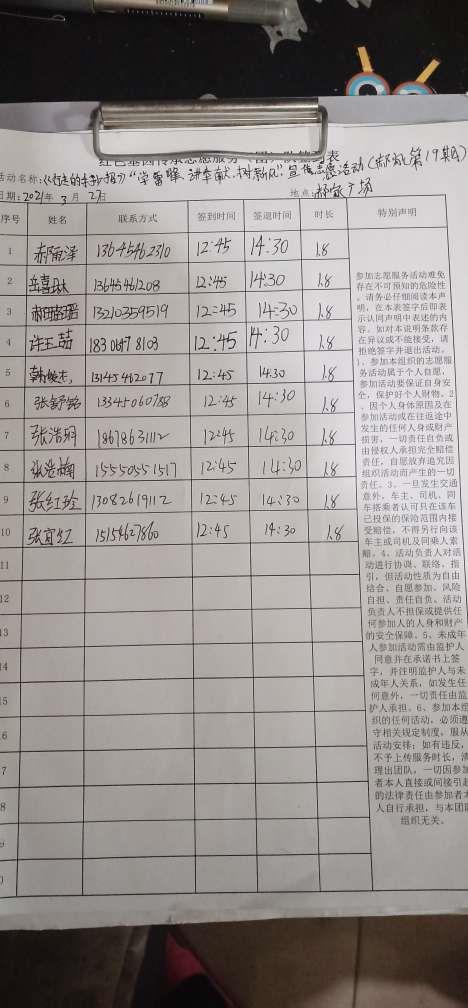 活动名称:《行走的手抄报》"学雷锋、讲奉献、树新风"宣传志愿活动(第19期)
日期:2021年 3 月 2日 地点:郝家广场
序号 姓名 联系方式 签到时间 签退时间 时长 特别声明
1 郝雨泽 13645462310 12:45 14:30 1.8
2 岳喜琳 13645461208 12:45 14:30 1.8
3 13210359519 12:45 14:30 1.8
4 许王喆 12:45 14:30 1.8
5 韩俊杰 13145462077 12:45 14:30 1.8
6 张舒铭 13345060788 12:45 14:30 1.8
7 张浩玥 18678631112 12:45 14:30 1.8
8 张浩楠 15550551517 12:45 14:30 1.8
9 张红玲 13082619112 12:45 14:30 1.8
10 张宜红 15154627860 12:45 14:30 1.8
11
12
13
14
5
6
7
8
参加志愿服务活动难免
存在不可预知的危险性
,请务必仔细阅读本声
明,在本表签字后即表
示认同声明中表述的内
容。如对本说明条款存
在异议或不能接受,请
拒绝签字并退出活动。
1、参加本组织的志愿服
务活动属于个人自愿,
参加活动要保证自身安
全,保护好个人财物。2
、因个人身体原因及在
参加活动或在往返途中
发生的任何人身或财产
损害,一切责任自负或
由侵权人承担完全赔偿
责任,自愿放弃追究因
组织活动而产生的一切
责任。3、一旦发生交通
意外,车主、司机、同
车搭乘者认可只在该车
已投保的保险范围内接
受赔偿,不得另行向该
车主或司机及同乘人索
赔。4、活动负责人对活
动进行协调、联络、指
引,但活动性质为自由
结合、自愿参加、风险
自担、责任自负、活动
负责人不担保或提供任
何参加人的人身和财产
的安全保障。5、未成年
人参加活动需由监护人
同意并在承诺书上签
字,并注明监护人与未
成年人关系,如发生任
何意外,一切责任由监
护人承担。6、参加本组
织的任何活动,必须遵
守相关规定制度,服从
活动安排;如有违反,
不予上传服务时长,清
理出团队,一切因参加
者本人直接或间接引起
的法律责任由参加者本
人自行承担,与本团队
组织无关。